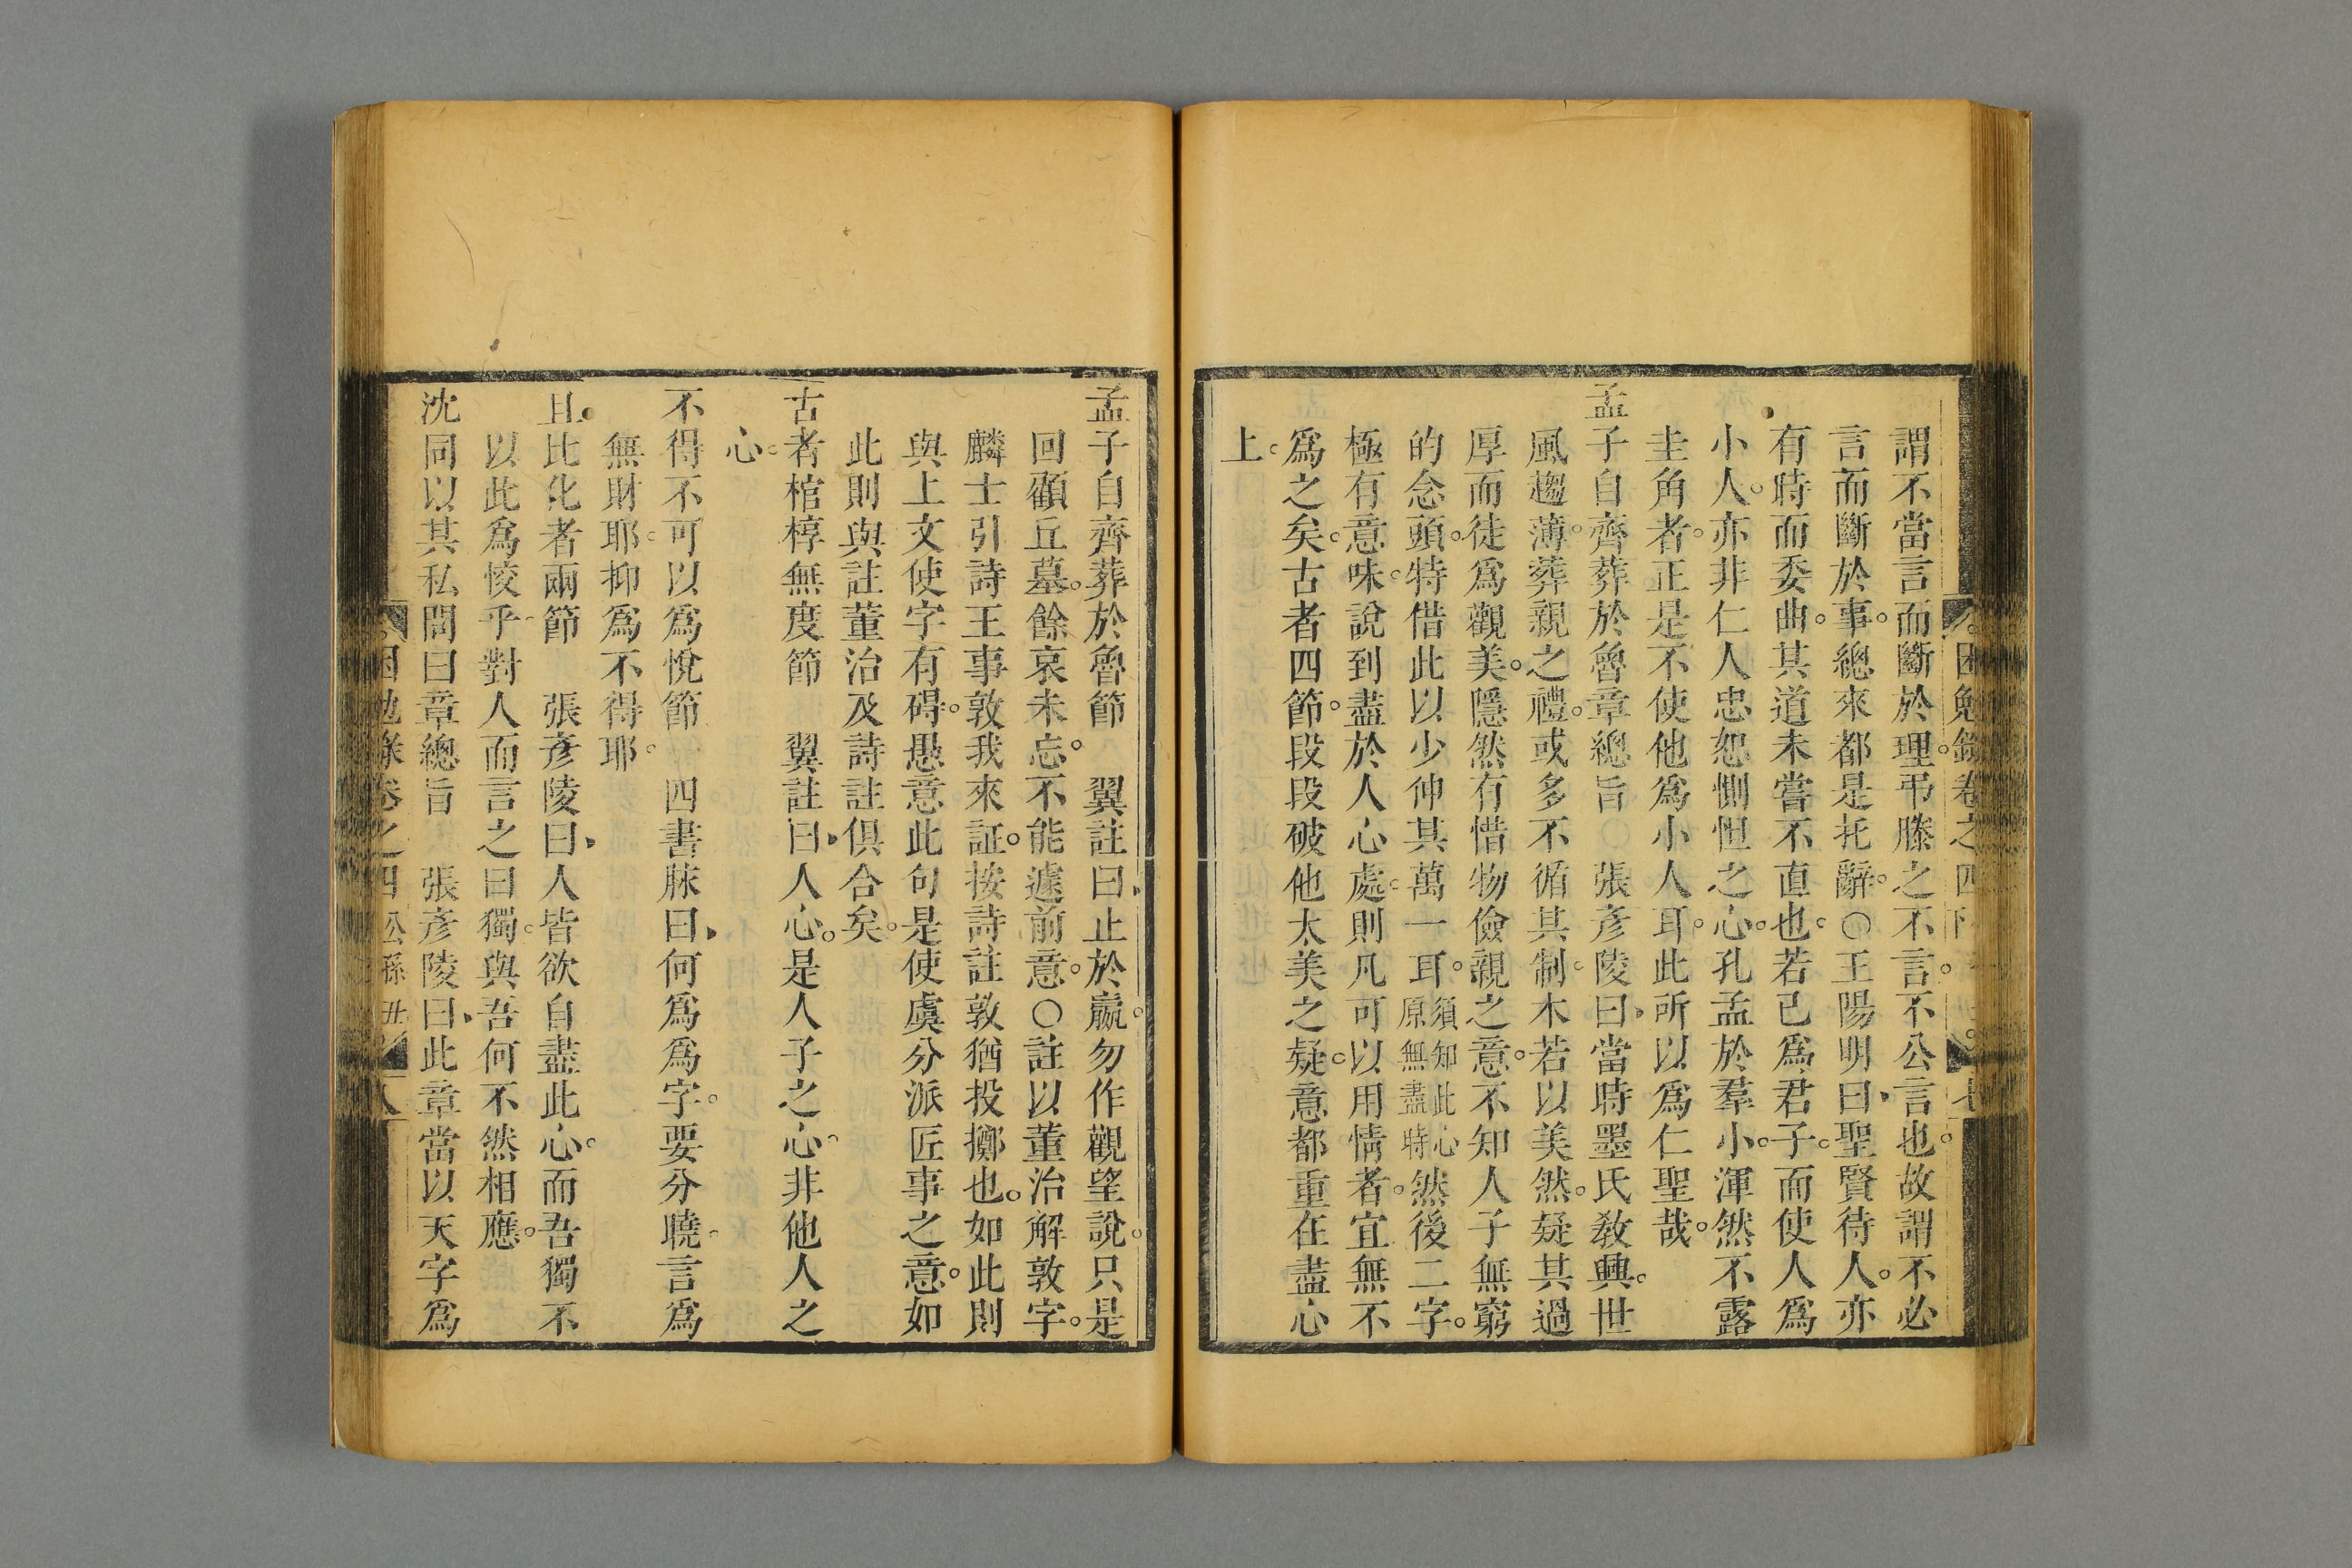 謂不當言而斷於理弔滕之不言不公言也故謂不必
言而斷於事總來都是托辭○王陽明曰聖賢待人亦
有時而委曲其道未嘗不直也若已爲君子而使人爲
小人亦非仁人忠恕惻怛之心孔孟於羣小渾然不露
圭角者正是不使他爲小人耳此所以爲仁聖哉
孟子自齊葬於魯章總旨　張彥陵曰當時墨氏敎興世
風趨薄葬親之禮或多不循其制木若以美然疑其過
厚而徒爲觀美隱然有惜物儉親之意不知人子無窮
的念頭特借此以少伸其萬一耳須知此心原無盡時然後二字
極有意味說到盡於人心處則凡可以用情者宜無不
爲之矣古者四節段段破他太美之疑意都重在盡心
上
孟子自齊葬於魯節　翼註曰止於嬴勿作觀望說只是
回顧丘墓餘哀未忘不能遽前意○註以董治解敦字
麟士引詩王事敦我來証按詩註敦猶投擲也如此則
與上文使字有碍愚意此句是使虞分派匠事之意如
此則與註董治及詩註俱合矣
古者棺椁無度節　翼註曰人心是人子之心非他人之
心
不得不可以爲悅節　四書脉曰何爲爲字要分曉言爲
無財耶抑爲不得耶
且比化者兩節　張彥陵曰人皆欲自盡此心而吾獨不
以此爲恔乎對人而言之曰獨與吾何不然相應
沈同以其私問曰章總旨　張彥陵曰此章當以天字爲
困勉錄卷之四 公孫丑 八